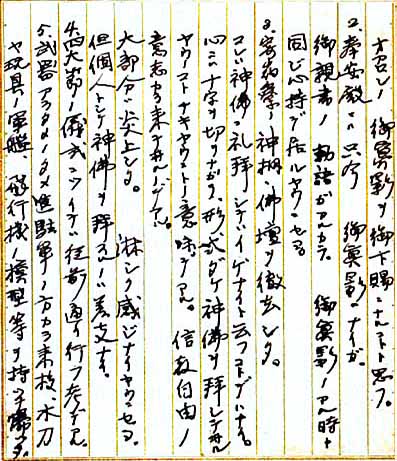 オカレテ御真影ヲ御下賜ニナルコトト思フ。
2.奉安殿ニハ只今御真影ハナイガ、
御親書ノ勅語ガアルカラ御真影ノアル時ト
同ジ心持デ居ルヤウニセヨ。
3.寄宿寮ノ神棚、佛壇ヲ撤去シタ。
コレハ神佛ヲ礼拝シテハイケナイト云フコトデハナイ。
心ニハ十字ヲ切リナガラ、形式ダケ神佛ヲ拝シテヰル
ヤウナコトナキヤウニトノ意味デアル。信教自由ノ
意志カラ来テヰルノデアル。
大部分ハ炎上シタ。淋シク感ジナイヤウニセヨ。
但個人トシテ神佛ヲ拝スルハ差支ナイ。
4.四大節ノ儀式ニツイテハ従前通リ行フ考デアル。
5.武器アラタメノタメ進駐軍ノ方カラ来校、木刀
ヤ玩具ノ軍艦、飛行機ノ模型等ヲ持チ帰ッタ。